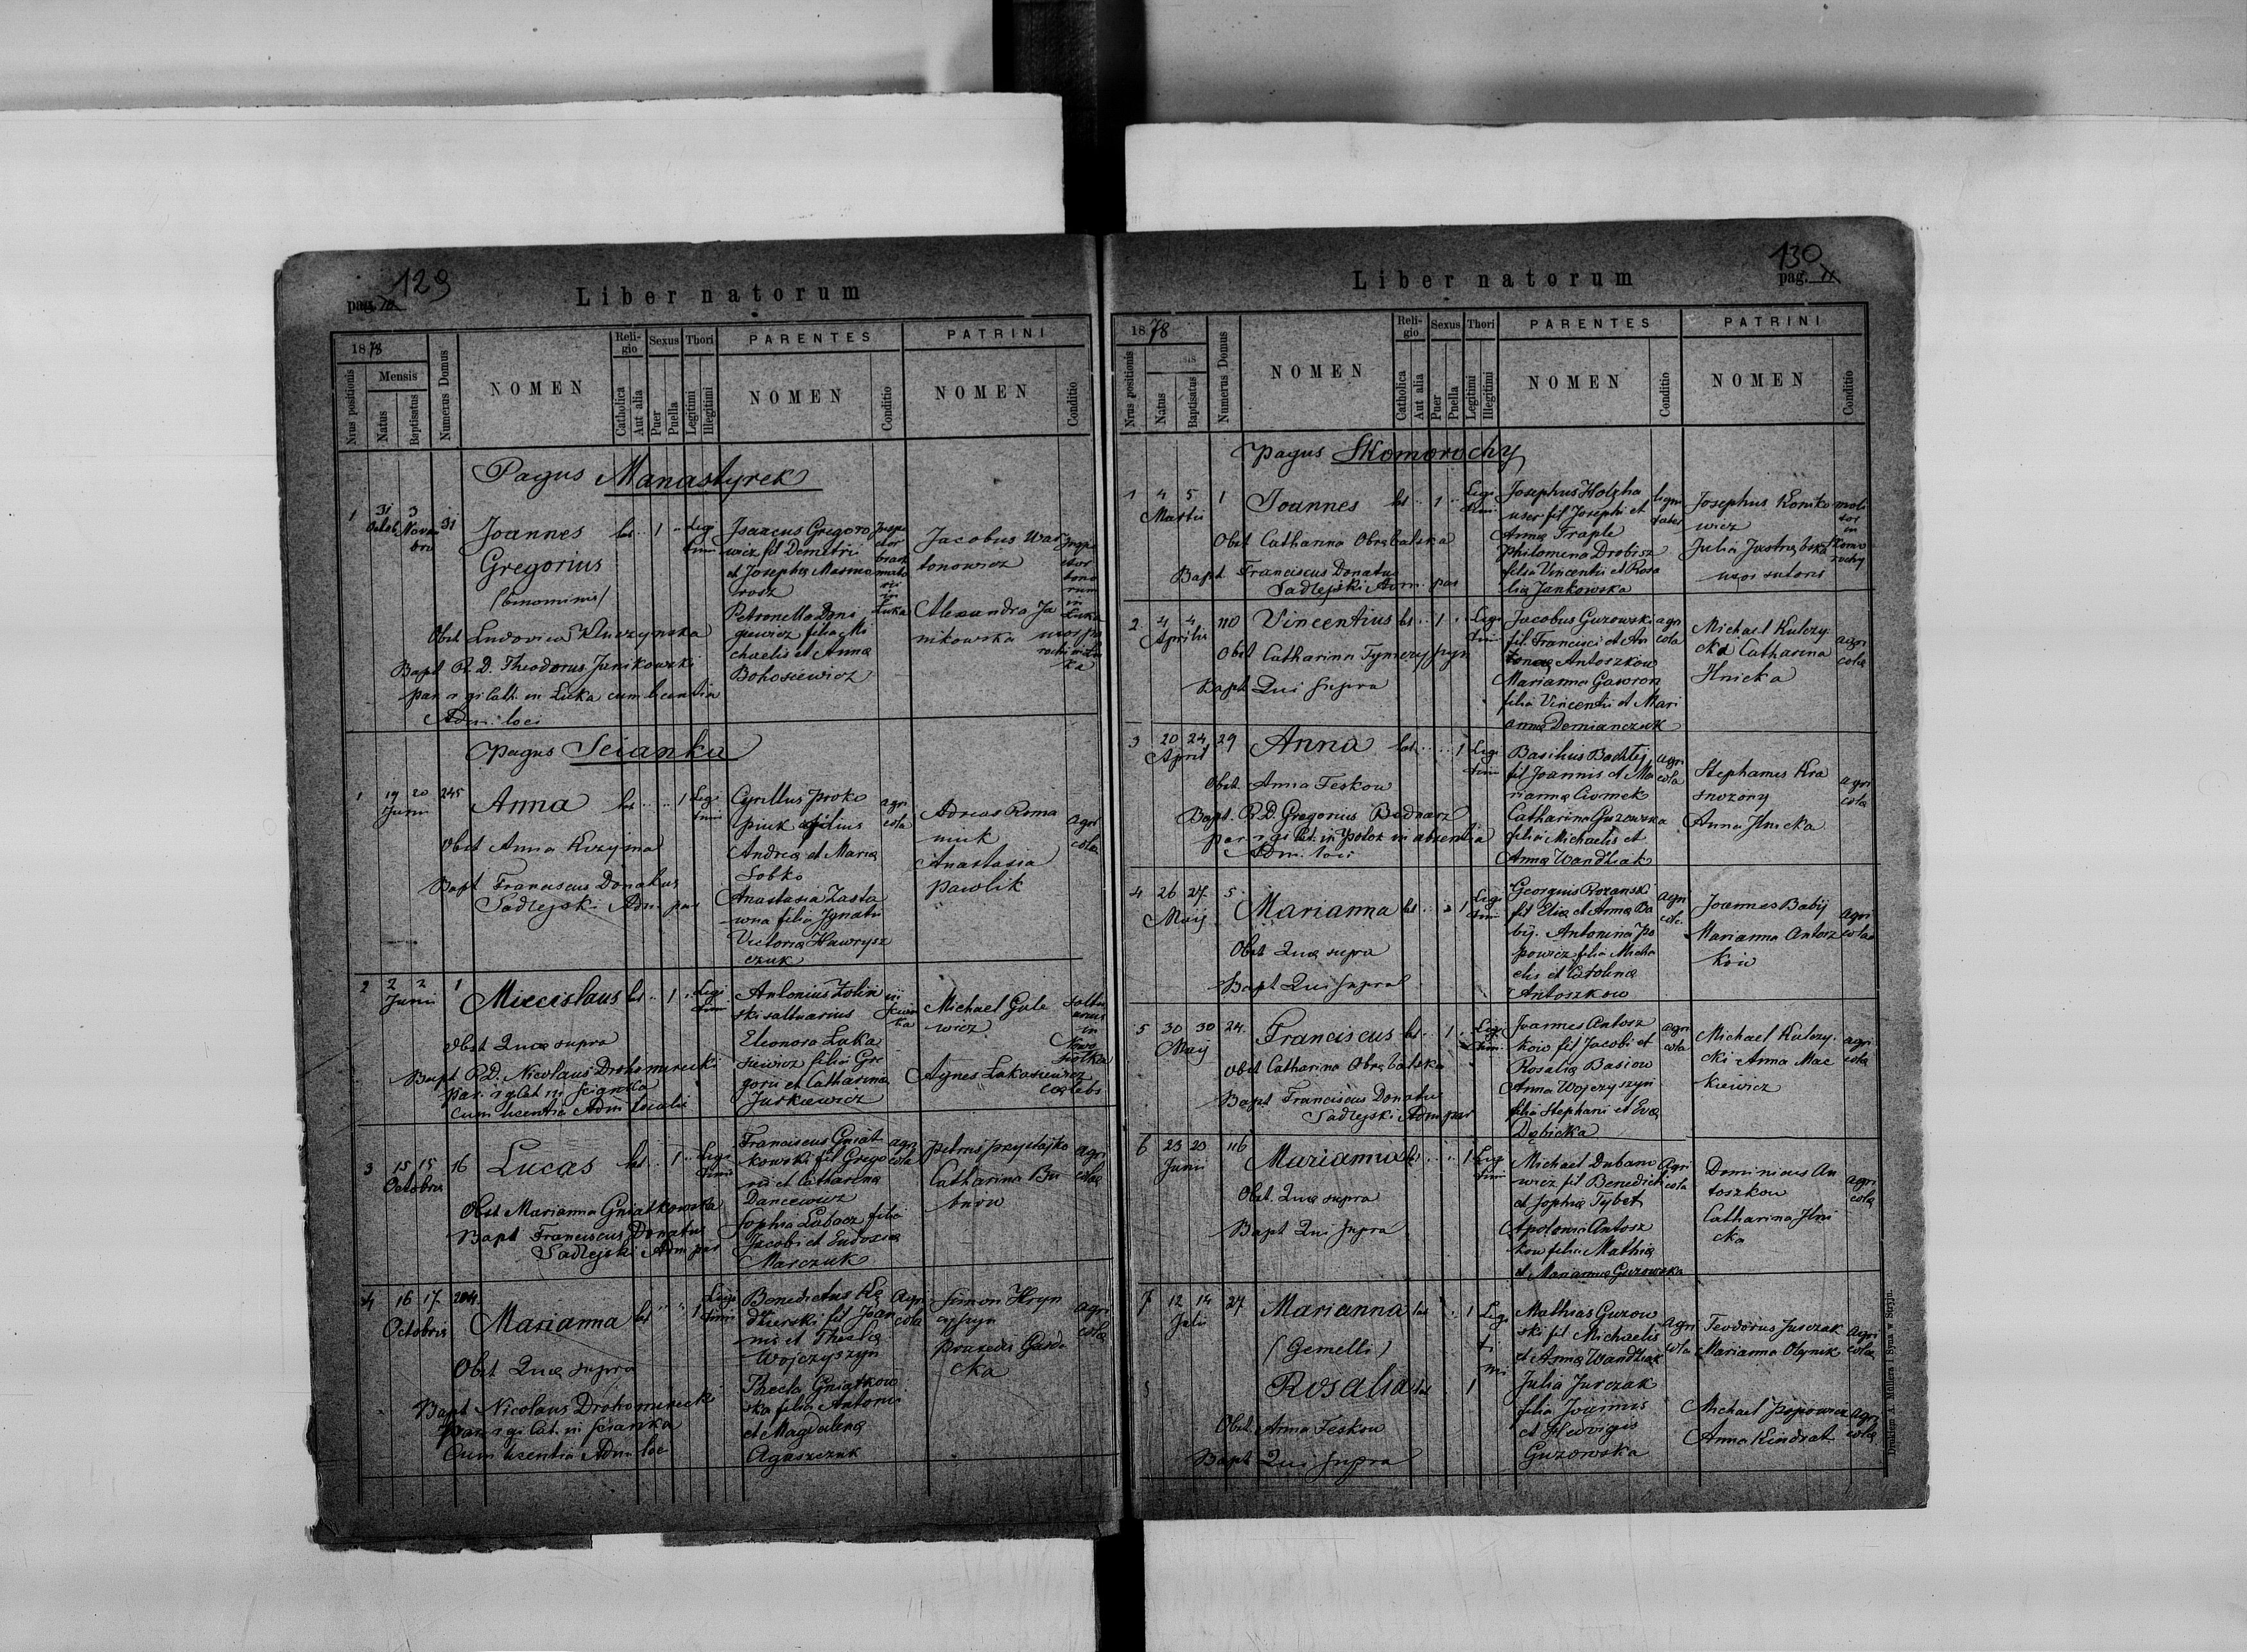 129
pag. 70
Liber natorum
1878
Nrus positionis
Mensis
Natus
Baptisatus
Numerus Domus
NOMEN
Religio
Catholica
Aut alia
Sexus
Puer
Puella
Thori
Legitimi
Illegitimi
PARENTES
NOMEN
Conditio
PATRINI
NOMEN
Conditio
Pagus Manastyrek
1 31 Octob 3 Novem bris 31 Joannes lat .. 1 .. Legi timi
Gregorius
/binominis/
Obst Ludovica Kluczynska
Bapt R. D. Theodorus Junikowski
par. r gr Cath. in Luka cum licentia
Adm. loci
Isaacus Gregoro
wicz fil Demetrii
et Josepha
Petronella
giewicz filia Mi
chaelis et Anna
Bohosiewicz
Jacobus War
tonowicz
Alexandra Ja
nikowska uxor pa
rochi in Lu
ka
Pagus Scianka
1 19 20 Junii 245 Anna lat .. .. 1 Legi timi
Obst Anna Kuzyma
Bapt Franciscus Donatus
Sadlejski Adm. par
Cyrillus Proko
piuk filius
Andrea et Maria
Sobko
Anastasia Zasta
wna filia Ignatii
Victoria Hawrysz
czuk
agri
cola
Adreas Roma
niuk
Anastasia
Pawlik
agri
cola
2 2 2 Junii 1 Miecislaus lat .. 1 .. Legi timi
Obst Quae supra
Bapt R.D. Nicolaus Drohomirecki
par. r g Cat in Scianka
cum licentia Adm localis
Antonius Zolin
ski saltuarius
Eleonora Luka
siewicz filia Gre
gorii et Catharina
Jurkiewicz
in
Scian
ka
Michael Gule
wicz
Agnes Lukasiewicz
caelebs
saltu
arius
in
Nowo
siolka
3 15 15 Octobris 16 Lucas lat .. 1 .. Legi timi
Obst Marianna Gniatkowska
Bapt Franciscus Donatus
Sadlejski Adm par
Franciscus Gniat
kowski fil Grego
rii et Catharina
Dancewicz
Sophia Labacz filia
Jacobi et Eudoxia
Marczuk
agri
cola
Petrus Przystajko
Catharina Bu
trow
agri
cola
4 16 17 Octobris 204 Marianna lat .. .. 1 Legi timi
Obst Quae supra
Bapt Nicolaus Drohomirecki
par. r gr Cat. in Scianka
Cum licentia Adm loc
Benedictus Ke
dzierski fil Joan
nis et Thecla
Wojczyszyn
Thecla Gniatkow
ska filia Antonii
et Magdalena
Agaszczuk
Agri
cola
Simon Hryn
czyszyn
Praxedis Gard
cka
agri
cola
130
pag. 71
Liber natorum
1878
Nrus positionis
Natus
Baptisatus
Numerus Domus
NOMEN
Religio
Catholica
Aut alia
Sexus
Puer
Puella
Thori
Legitimi
Illegitimi
PARENTES
NOMEN
Conditio
PATRINI
NOMEN
Conditio
Pagus Skomorochy
1 4 5 Martii 1 Joannes lat .. 1 .. Legi timi
Obst Catharina Obrebalska
Bapt Franciscus Donatus
Sadlejski Adm. par
Josephus Holzha
user fil Josephi et
Anna Traple
Philomena Drobisz
filia Vincentii et Rosa
lia Jankowska
lign
faber
Josephus Konko
wicz
Julia Jastrebska
uxor sutoris
moli
tor
in
Skomo
rochy
2 4 4 Aprilis 110 Vincentius lat .. 1 .. Legi timi
Obst Catharina Tymczyszyn
Bapt Qui supra
Jacobus Guzowski
fil Francisci et An
tonae Antoszkow
Marianna Gawron
filia Vincentii et Mari
anna Demianczuk
agri
cola
Michael Kulczy
cki Catharina
Ilnicka
agri
cola
3 20 24 April 29 Anna lat .. .. 1 Legi timi
Obst. Anna Feskow
Bapt. R.D. Gregorius Bodnarz
par r gr Cat. in Potok in absentia
Adm. loci
Basilius Badlij
fil Joannis et Ma
rianna Ciomek
Catharina Guzowska
filia Michaelis et
Anna Wandziak
agri
cola
Stephanus Kra
snozony
Anna Ilnicka
agri
cola
4 26 27 Maij 5 Marianna lat .. .. 1 Legi timi
Obst Quae supra
Bapt Qui supra
Georgius Rozanski
fil Elia et Anna Ba
bij. Antonina Po
powicz filia Micha
elis et Carolina
Antoszkow
agri
col.
Joannes Babij
Marianna Antosz
kow
agri
cola
5 30 30 Maij 24. Franciscus lat .. 1 .. Legi timi
Obst Catharina Obrebalska
Bapt Franciscus Donatus
Sadlejski Adm par
Joannes Antosz
kow fil Jacobi et
Rosalia Basiow
Anna Wojczyszyn
filia Stephani et Eva
Debicka
agri
cola
Michael Kulczy
cki Anna Mac
kiewicz
agri
cola
6 23 23 Junii 116 Marianna lat .. .. 1 Legi timi
Obst. Quae supra
Bapt Qui supra
Michael Dubano
wicz fil Benedicti
et Sophia Tybet
Apolonia Antosz
kow filia Mathia
et Marianna Guzowska
Agri
cola
Dominicus An
toszkow
Catharina Ilni
cka
agri
cola
7 12 14 Julii 27 Marianna lat .. 1 Legi
(Gemelli) ti
Rosalia lat 1 mi
Obst. Anna Feskow
Bapt Qui supra
Mathias Guzow
ski fil Michaelis
et Anna Wandziak
Julia Jurczak
filia Joannis
et Hedvigis
Guzowska
agri
cola
Teodorus Jurczak
Marianna Olejnik
Michael Popowicz
Anna Kindrat
Agri
cola
agri
cola
Drukiem A. Müllera i Syna w Stryju.